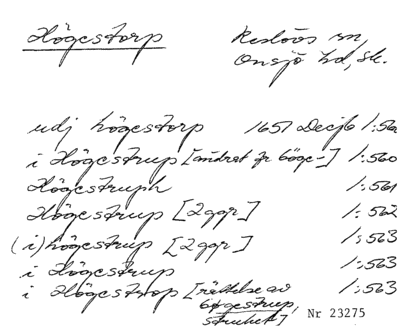 Högestorp
Reslövs sn,
Onsjö hd, sk.
udj högestorp 1651 Decjb 1:560
i Högestrup [ändrat fr böge-] 1:560
Högestruph 1:561
Högestrup [2 ggr] 1:562
(i) högestrup [2 ggr] 1:563
i Högestrup 1:563
i Högestrop [rättelse av 1:563
bøgestrup,
struket]
Nr 23275